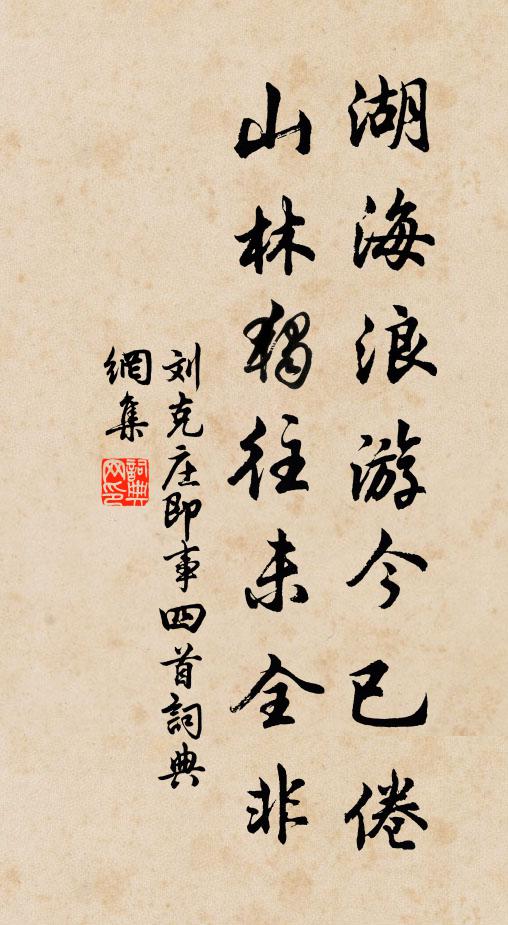 湖海浪游今已倦
山林独往未全非
刘克庄即事四首詞典
網集
詞典网印